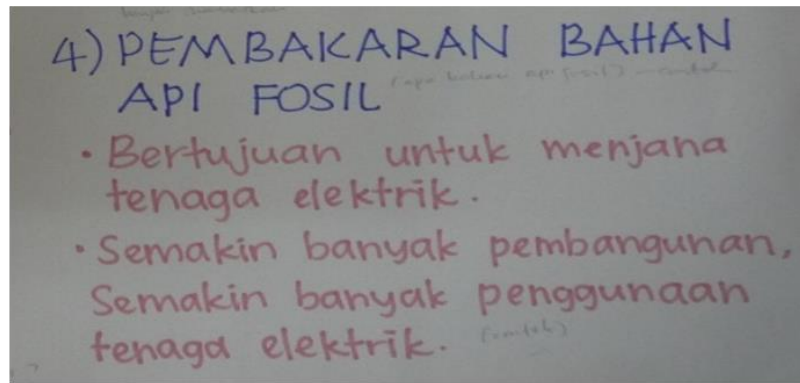 4) PEMBAKARAN BAHAN
API FOSIL
• Bertujuan untuk menjana
tenaga elektrik.
• Semakin banyak pembangunan,
Semakin banyak penggunaan
tenaga elektrik. (contoh)